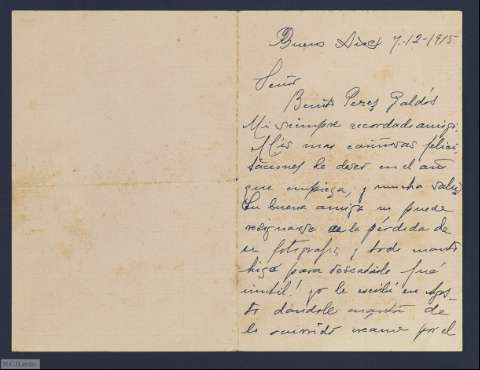 Buenos Aires 7-12-1915
Señor
Benito Perez Galdós
Mi siempre recordado amigo.
Mis mas cariñosas felici
taciones le deseo en el año
que empieza, y mucha salud
Su buena amiga no puede
resignarse a la pérdida de
su fotografia, y todo cuanto
hizo para rescatarle fué
inutil! yo le escribí en Agos-
to dándole cuenta de
lo ocurrido por el